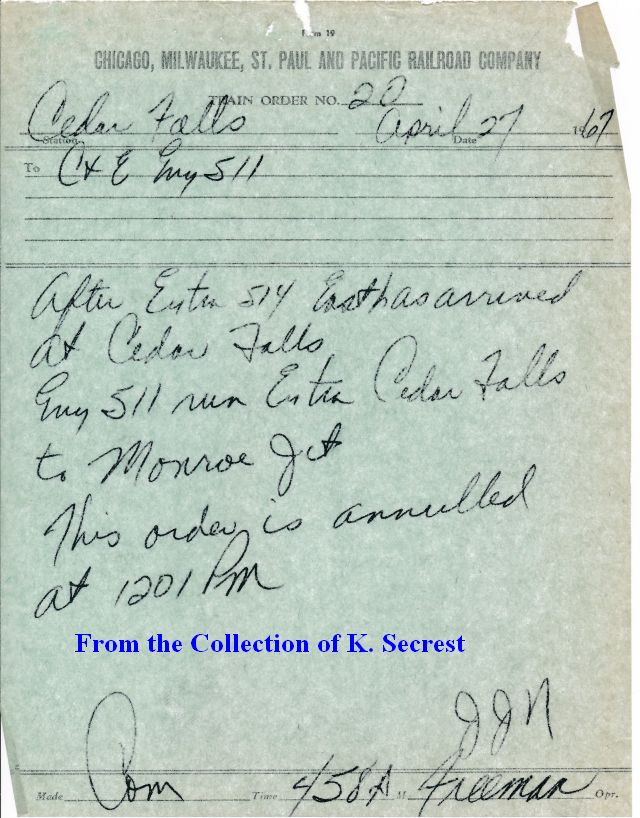 Form 19
CHICAGO, MILWAUKEE, ST. PAUL AND PACIFIC RAILROAD COMPANY
TRAIN ORDER NO. 20
Cedar Falls April 27 1967
Station Date
To C & E Eng 511
After Extra 514 East has arrived
at Cedar Falls
Eng 511 run Extra Cedar Falls
to Monroe Jct
This order is annulled
at 1201 Pm
From the Collection of K. Secrest
JJN
Made Com Time 458 A M Freeman Opr.